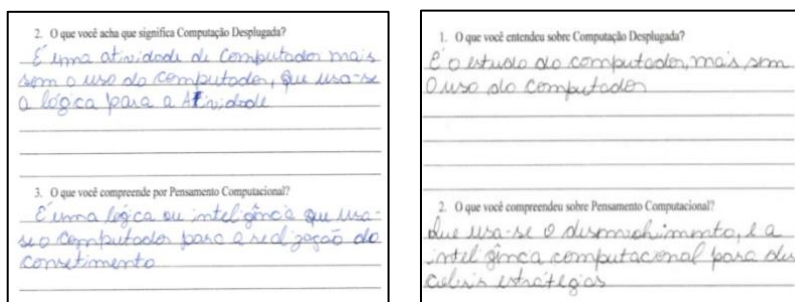 2. O que você acha que significa Computação Desplugada?
É uma atividade de Computador mais
sem o uso do computador, que usa-se
a lógica para a Atividade
3. O que você compreende por Pensamento Computacional?
É uma lógica ou inteligência que usa-
se o computador para a realização do
consetimento
1. O que você entendeu sobre Computação Desplugada?
É o estudo do computador, mais sem
O uso do computador
2. O que você compreendeu sobre Pensamento Computacional?
Que usa-se o e a
computacional para des
estratégias